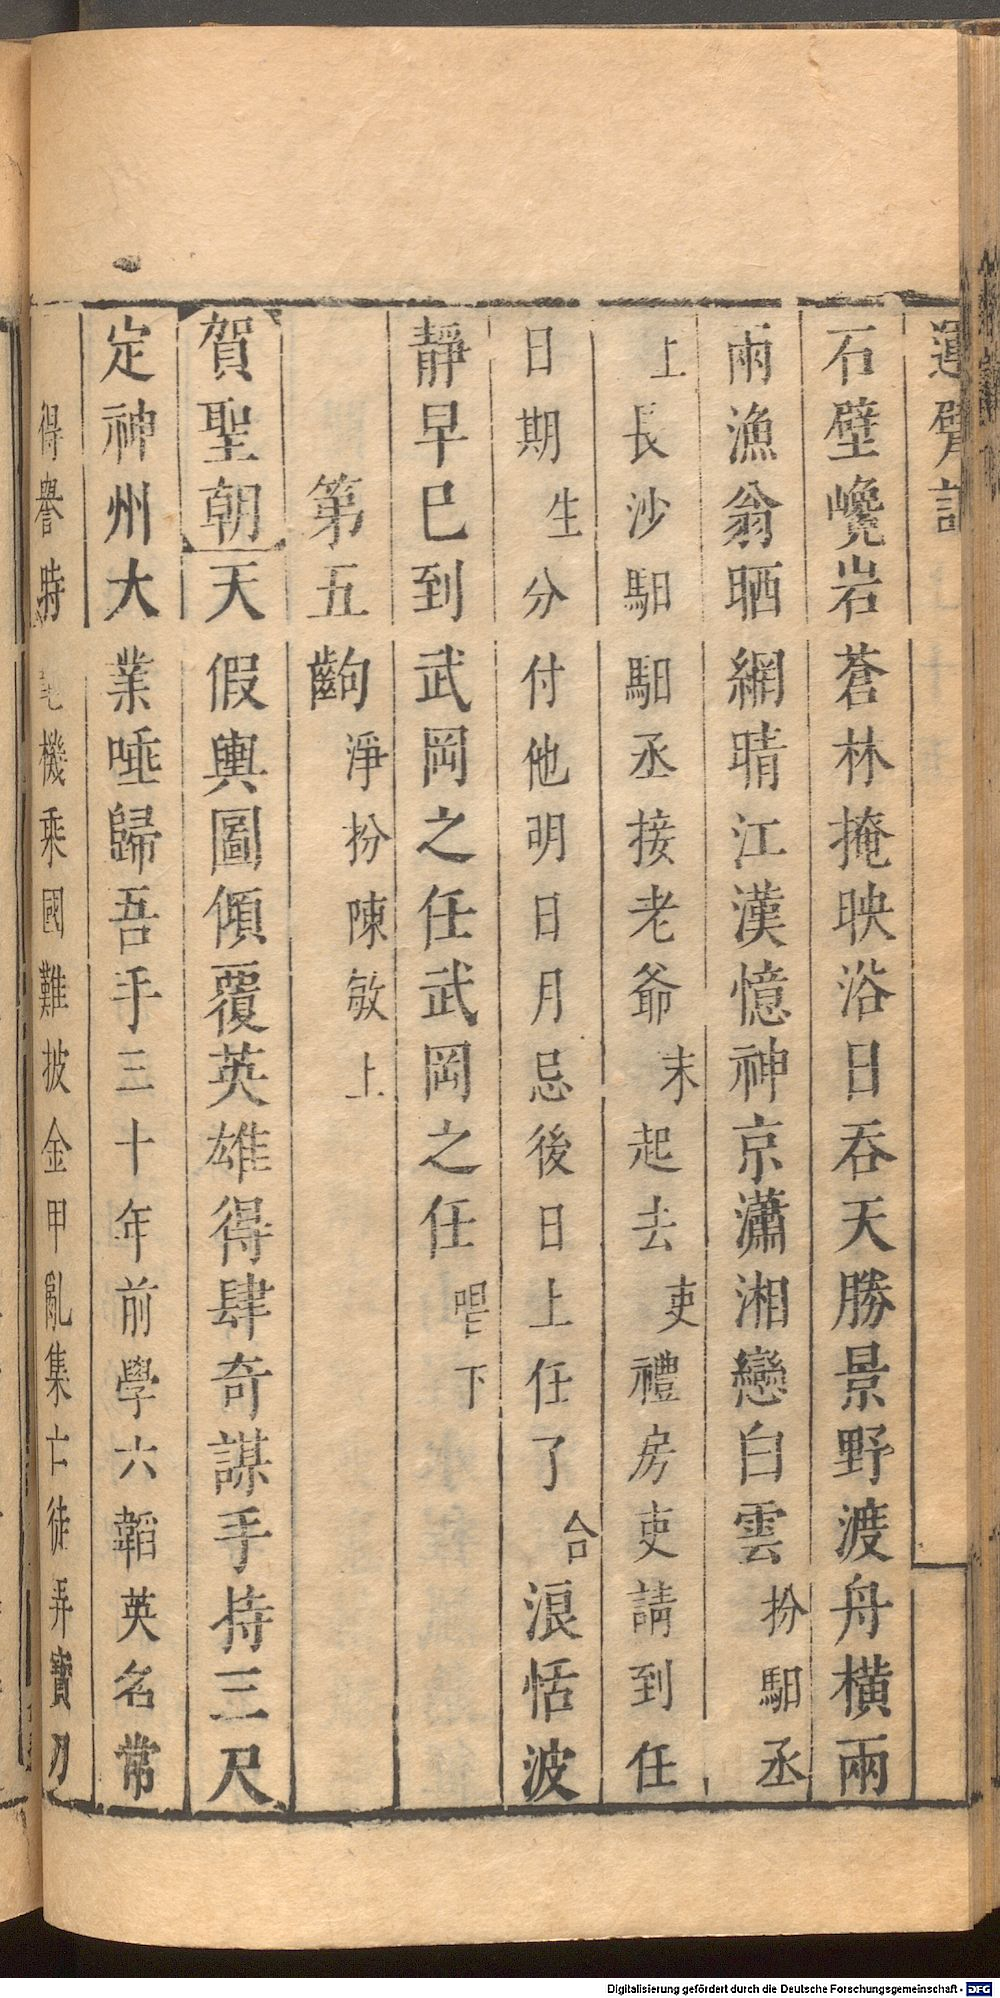 運甓記
石壁巉岩蒼林掩映浴日吞天勝景野渡舟橫兩
兩漁翁晒網晴江漢憶神京瀟湘戀白雲扮馹丞
上長沙馹馹丞接老爺末起去吏禮房吏請到任
日期生分付他明日月忌後日上任了合浪恬波
靜早巳到武岡之任武岡之任唱下
第五齣淨扮陳敏上
賀聖朝天假輿圖傾覆英雄得肆奇謀手持三尺
定神州大業唾歸吾手三十年前學六韜英名常
得譽時髦機乘國難披金甲亂集亡徒弄寶刀
Digitalisierung gefördert durch die Deutsche Forschungsgemeinschaft - DFG